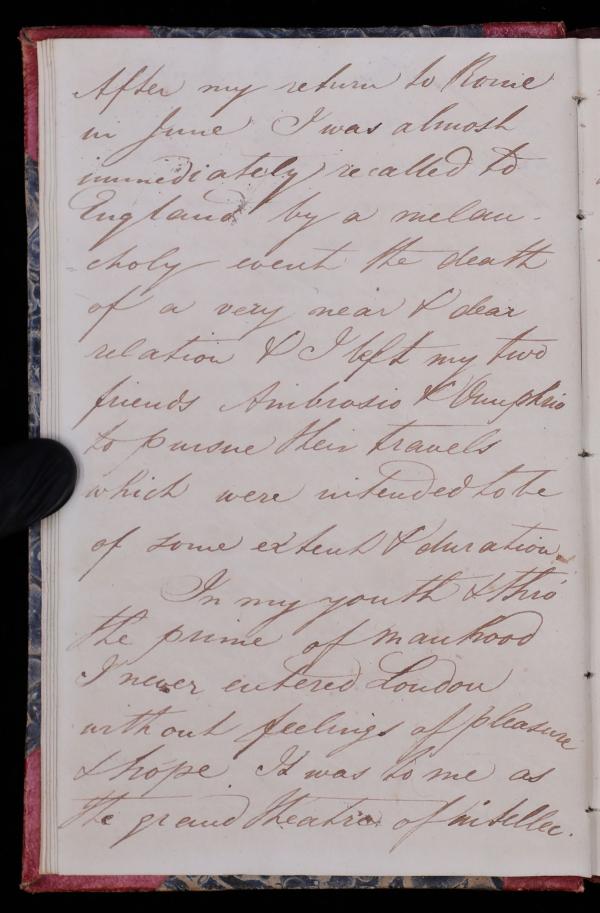 After my return to Rome
in June I was almost
immediately recalled to
England by a melan-
choly event the death
of a very near & dear
relation & I left my two
friends Ambrosio & Onuphrio
to pursue their travels
which were intended to be
of some extent & duration.
In my youth & thro'
the prime of manhood
I never entered London
without feelings of pleasure
& hope. It was to me as
the grand theatre of intellec-